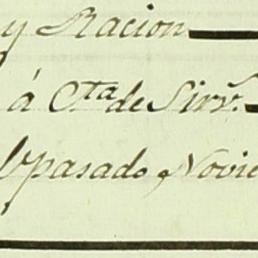 y Racion
á Cta de Sirv.
l pasado Novie